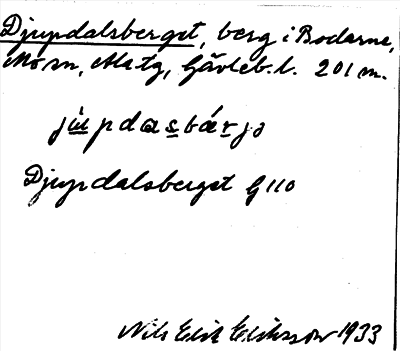 Djupdalsberget, berg i Bodarne,
Mo sn, Ala tg, Gävleb. l. 201 m.
júpdasbárjə
Djupdalsberget G 110
Nils Erik Eriksson 1933